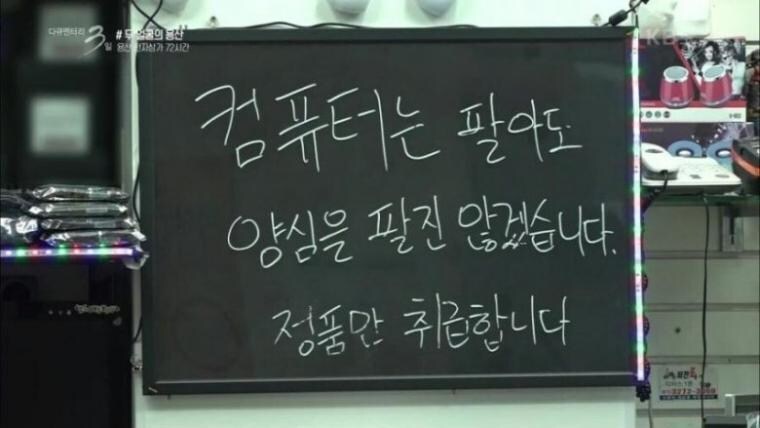 다큐멘터리 3일
# 두 얼굴의 용산
용산 전자상가 72시간
KBS
컴퓨터는 팔아도
양심을 팔진 않겠습니다.
정품만 취급합니다